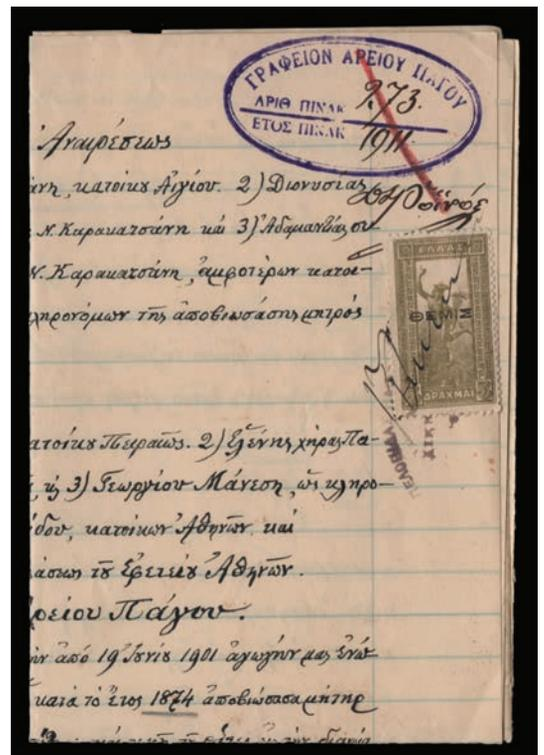 ΓΡΑΦΕΙΟΝ ΑΡΕΙΟΥ ΠΑΓΟΥ
ΑΡΙΘ ΠΙΝΑΚ 273.
ΕΤΟΣ ΠΙΝΑΚ 1911
Ἀναιρέσεως
άνη, κατοίκου Αἰγίου. 2) Διονυσίας
Ν. Καρακατσάνη καὶ 3) Ἀδαμαντίας συ-
Ν. Καρακατσάνη, ἀμφοτέρων κατοί-
ληρονόμων τῆς ἀποβιωσάσης μητρός
ΕΛΛΑΣ
ΘΕΜΙΜ
ΔΡΑΧΜΑΙ
ατοίκου Πειραιῶς. 2) Ἑλένης χήρας Πα-
3) Γεωργίου Μάνεση, ὡς κληρο-
δου, κατοίκων Ἀθηνῶν. καὶ
άσεως τοῦ Ἐφετείου Ἀθηνῶν.
ρείου Πάγου.
ὴν ἀπὸ 19 Ἰουνίου 1901 ἀγωγήν μας
κατὰ τὸ ἔτος 1874 ἀποβιώσασα μήτηρ